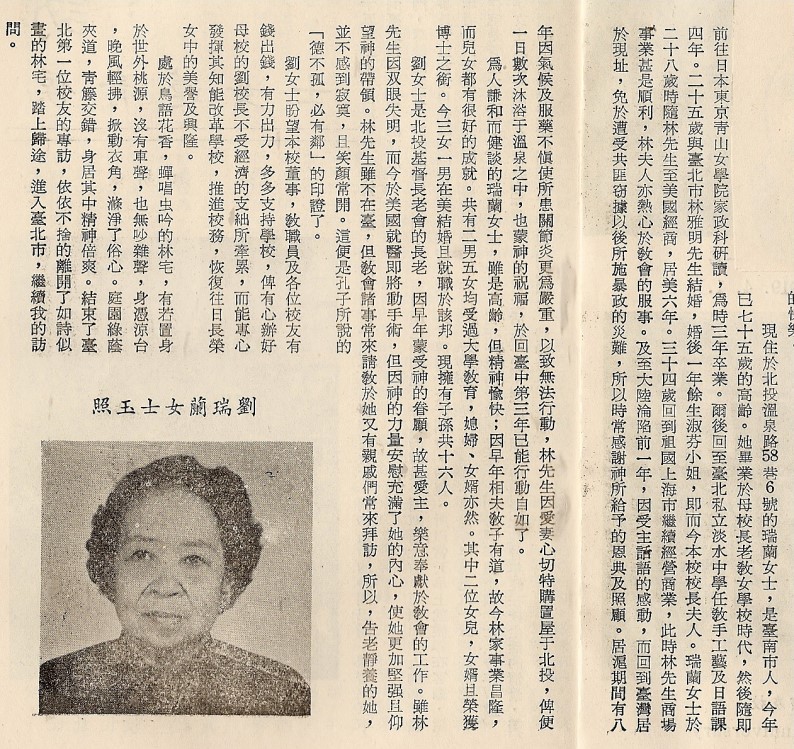 現住於北投溫泉路58巷6號的瑞蘭女士，是臺南市人，今年
已七十五歲的高齡。她畢業於母校長老敎女學校時代，然後隨即
前往日本東京靑山女學院家政科硏讀，爲時三年卒業。爾後回至臺北私立淡水中學任敎手工藝及日語課
四年。二十五歲與臺北市林雅明先生結婚，婚後一年餘生淑芬小姐，即而今本校校長夫人。瑞蘭女士於
二十八歲時隨林先生至美國經商，居美六年。三十四歲回到祖國上海市繼續經營商業，此時林先生商場
事業甚是順利，林夫人亦熱心於敎會的服事。及至大陸淪陷前一年，因受主話語的感動，而回到臺灣居
於現址，免於遭受共匪窃據以後所施暴政的災難，所以時常感謝神所給予的恩典及照顧。居滬期間有八
年因氣候及服藥不愼使所患關節炎更爲嚴重，以致無法行動，林先生因愛妻心切特購置屋于北投，俾便
一日數次沐浴于溫泉之中，也蒙神的祝福，於回臺中第三年已能行動自如了。
爲人謙和而健談的瑞蘭女士，雖是高齡，但精神愉快；因早年相夫敎子有道，故今林家事業昌隆，
而兒女都有很好的成就。共有二男五女均受過大學敎育，媳婦、女婿亦然。其中二位女兒，女婿且榮獲
博士之銜。今三女一男在美結婚且就職於該邦。現擁有子孫共十六人。
劉女士是北投基督長老會的長老，因早年蒙受神的眷顧，故甚愛主，樂意奉獻於敎會的工作。雖林
先生因双眼失明，而今於美國就醫即將動手術，但因神的力量安慰充滿了她的內心，使她更加堅强且仰
望神的帶領。林先生雖不在臺，但敎會諸事常來請敎於她又有親戚們常來拜訪，所以，告老靜養的她，
並不感到寂寞，且笑顏常開。這便是孔子所說的
「德不孤，必有鄰」的印證了。
劉女士盼望本校董事，敎職員及各位校友有
錢出錢，有力出力，多多支持學校，俾有心辦好
母校的劉校長不受經濟的支絀所牽累，而能專心
發揮其知能改革學校，推進校務，恢復往日長榮
女中的美譽及興隆。
處於鳥語花香，蟬唱虫吟的林宅，有若置身
於世外桃源，沒有車聲，也無吵雜聲，身憑涼台
，晚風輕拂，掀動衣角，滌淨了俗心。庭園綠蔭
夾道，靑籐交錯，身居其中精神倍爽。結束了臺
北第一位校友的專訪，依依不捨的離開了如詩似
畫的林宅，踏上歸途，進入臺北市，繼續我的訪
問。
劉瑞蘭女士玉照